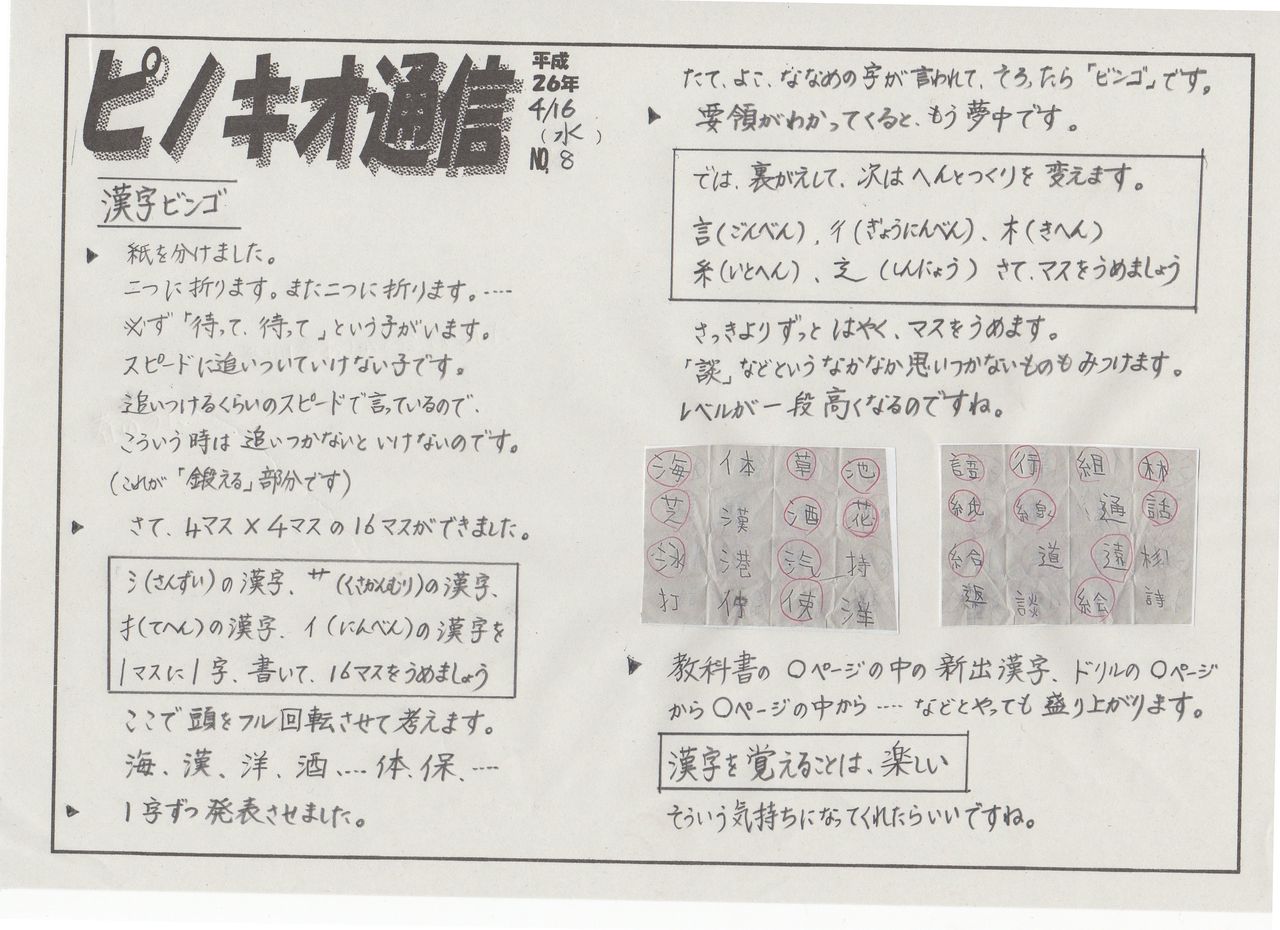 ピノキオ通信
平成
26年
4/16
(水)
NO, 8
漢字ビンゴ
▶ 紙を分けました。
二つに折ります。また二つに折ります。‥‥
※ず「待って、待って」という子がいます。
スピードに追いついていけない子です。
追いつけるくらいのスピードで言っているので、
こういう時は追いつかないといけないのです。
(これが「鍛える」部分です)
▶ さて、4マス×4マスの16マスができました。
氵(さんずい)の漢字、サ(くさかんむり)の漢字、
扌(てへん)の漢字、イ(にんべん)の漢字を
1マスに1字、書いて、16マスをうめましょう
ここで頭をフル回転させて考えます。
海、漢、洋、酒、‥‥体、保、‥‥
▶ 1字ずつ発表させました。
たて、よこ、ななめの字が言われて、そろったら「ビンゴ」です。
▶ 要領がわかってくると、もう夢中です。
では、裏がえして、次はへんとつくりを変えます。
言(ごんべん)、彳(ぎょうにんべん)、木(きへん)
糸(いとへん)、辶(しんにょう) さて、マスをうめましょう
さっきよりずっとはやく、マスをうめます。
「談」などというなかなか思いつかないものもみつけます。
レベルが一段高くなるのですね。
海 体 草 池
芝 漢 酒 花
泳 港 汽 持
打 仲 使 洋
語 行 組 林
紙 線 通 話
給 道 遠 杉
返 談 絵 詩
▶ 教科書の○ページの中の新出漢字、ドリルの○ページ
から○ページの中から‥‥などとやっても盛り上がります。
漢字を覚えることは、楽しい
そういう気持ちになってくれたらいいですね。